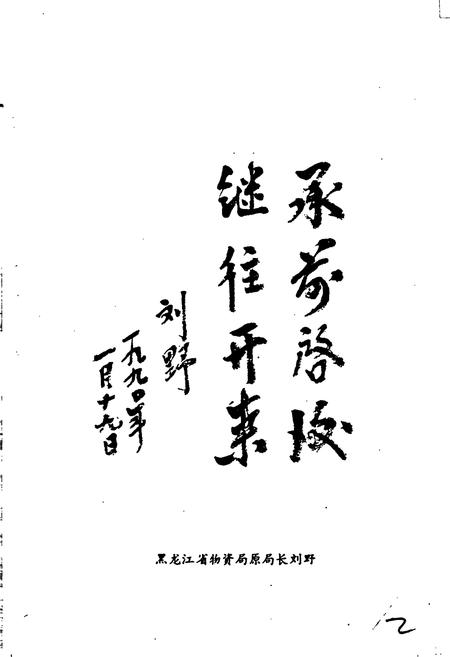 承前启后
继往开来
刘野
一九九〇年
一月十九日
黑龙江省物资局原局长刘野